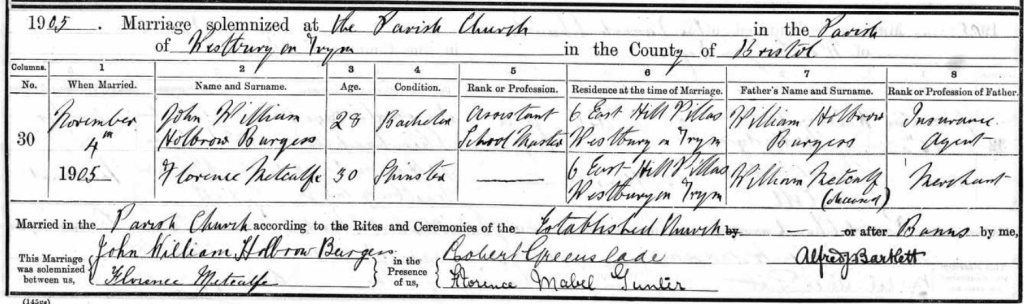 1905. Marriage solemnized at the Parish Church in the Parish
of Westbury on Trym in the County of Bristol
Columns. 1 2 3 4 5 6 7 8
No. When Married. Name and Surname. Age. Condition. Rank or Profession. Residence at the time of Marriage. Father's Name and Surname. Rank or Profession of Father.
November John William 28 Bachelor Assistant 6 East Hill Villas William Holbrow Insurance
30 4th Holbrow Burgess School Master Westbury on Trym Burgess Agent
1905 Florence Metcalfe 30 Spinster — 6 East Hill Villas William Metcalfe Merchant
Westbury on Trym (deceased)
Married in the Parish Church according to the Rites and Ceremonies of the Established Church by — or after Banns by me,
This Marriage was solemnized between us, John William Holbrow Burgess in the Presence of us, Robert Greenslade Alfred J Bartlett
Florence Metcalfe Florence Mabel Gunter
(145932)